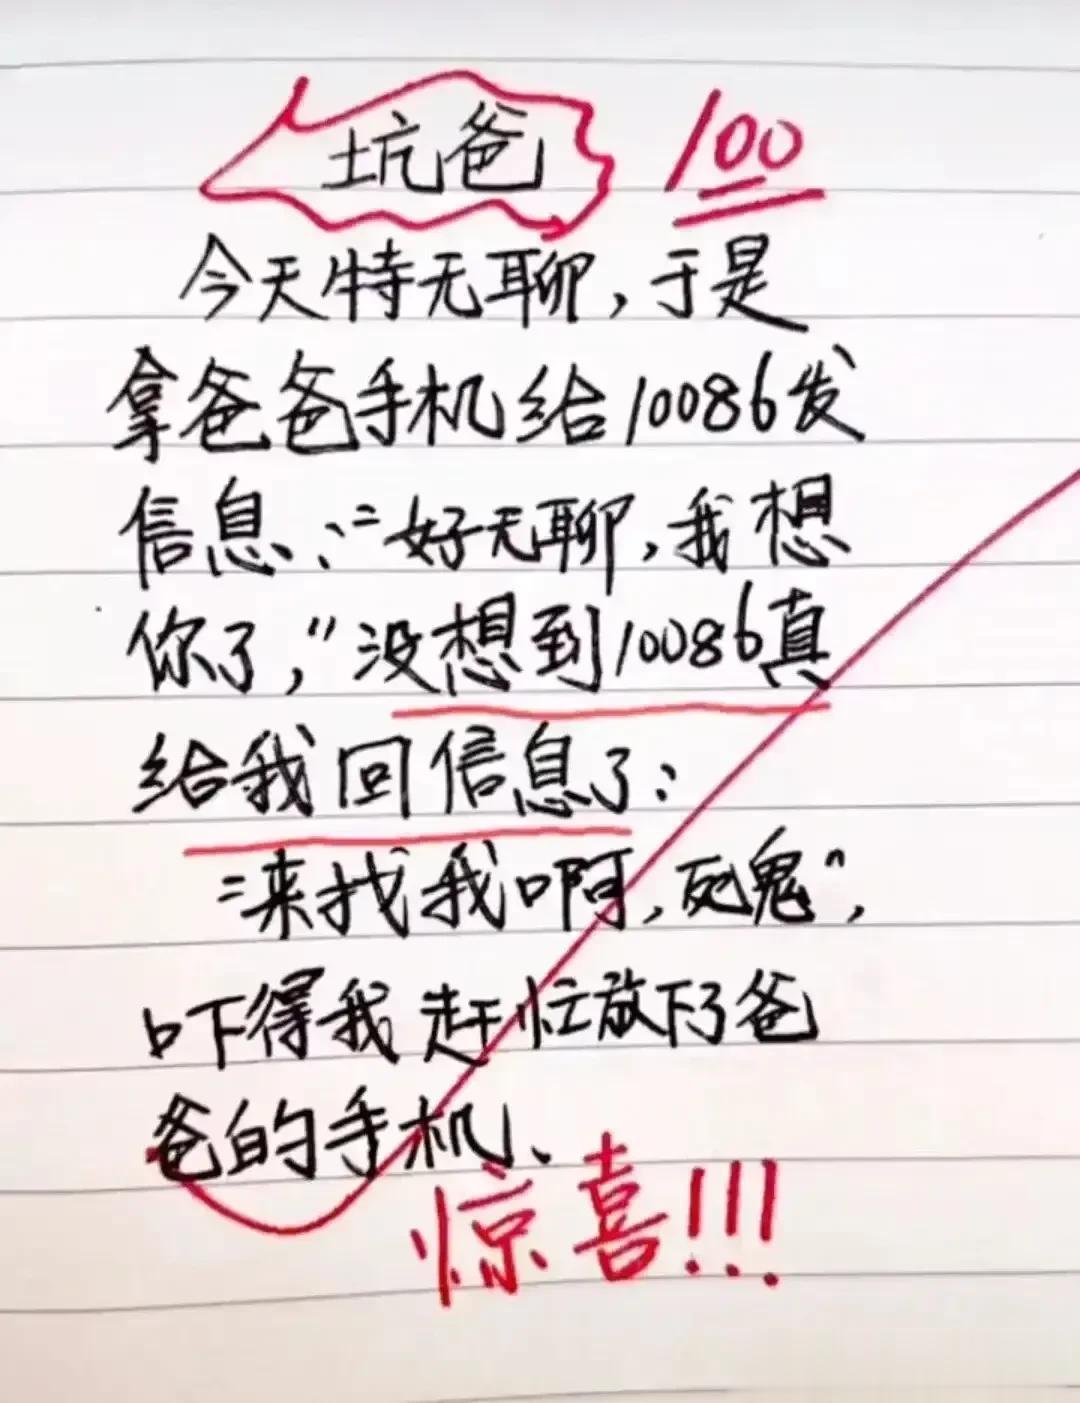 坑爸 100
今天特无聊,于是
拿爸爸手机给10086发
信息、:“好无聊,我想
你了,”没想到10086真
给我回信息了:
“来找我啊,死鬼”,
吓得我赶忙放下了爸
爸的手机、
惊喜!!!